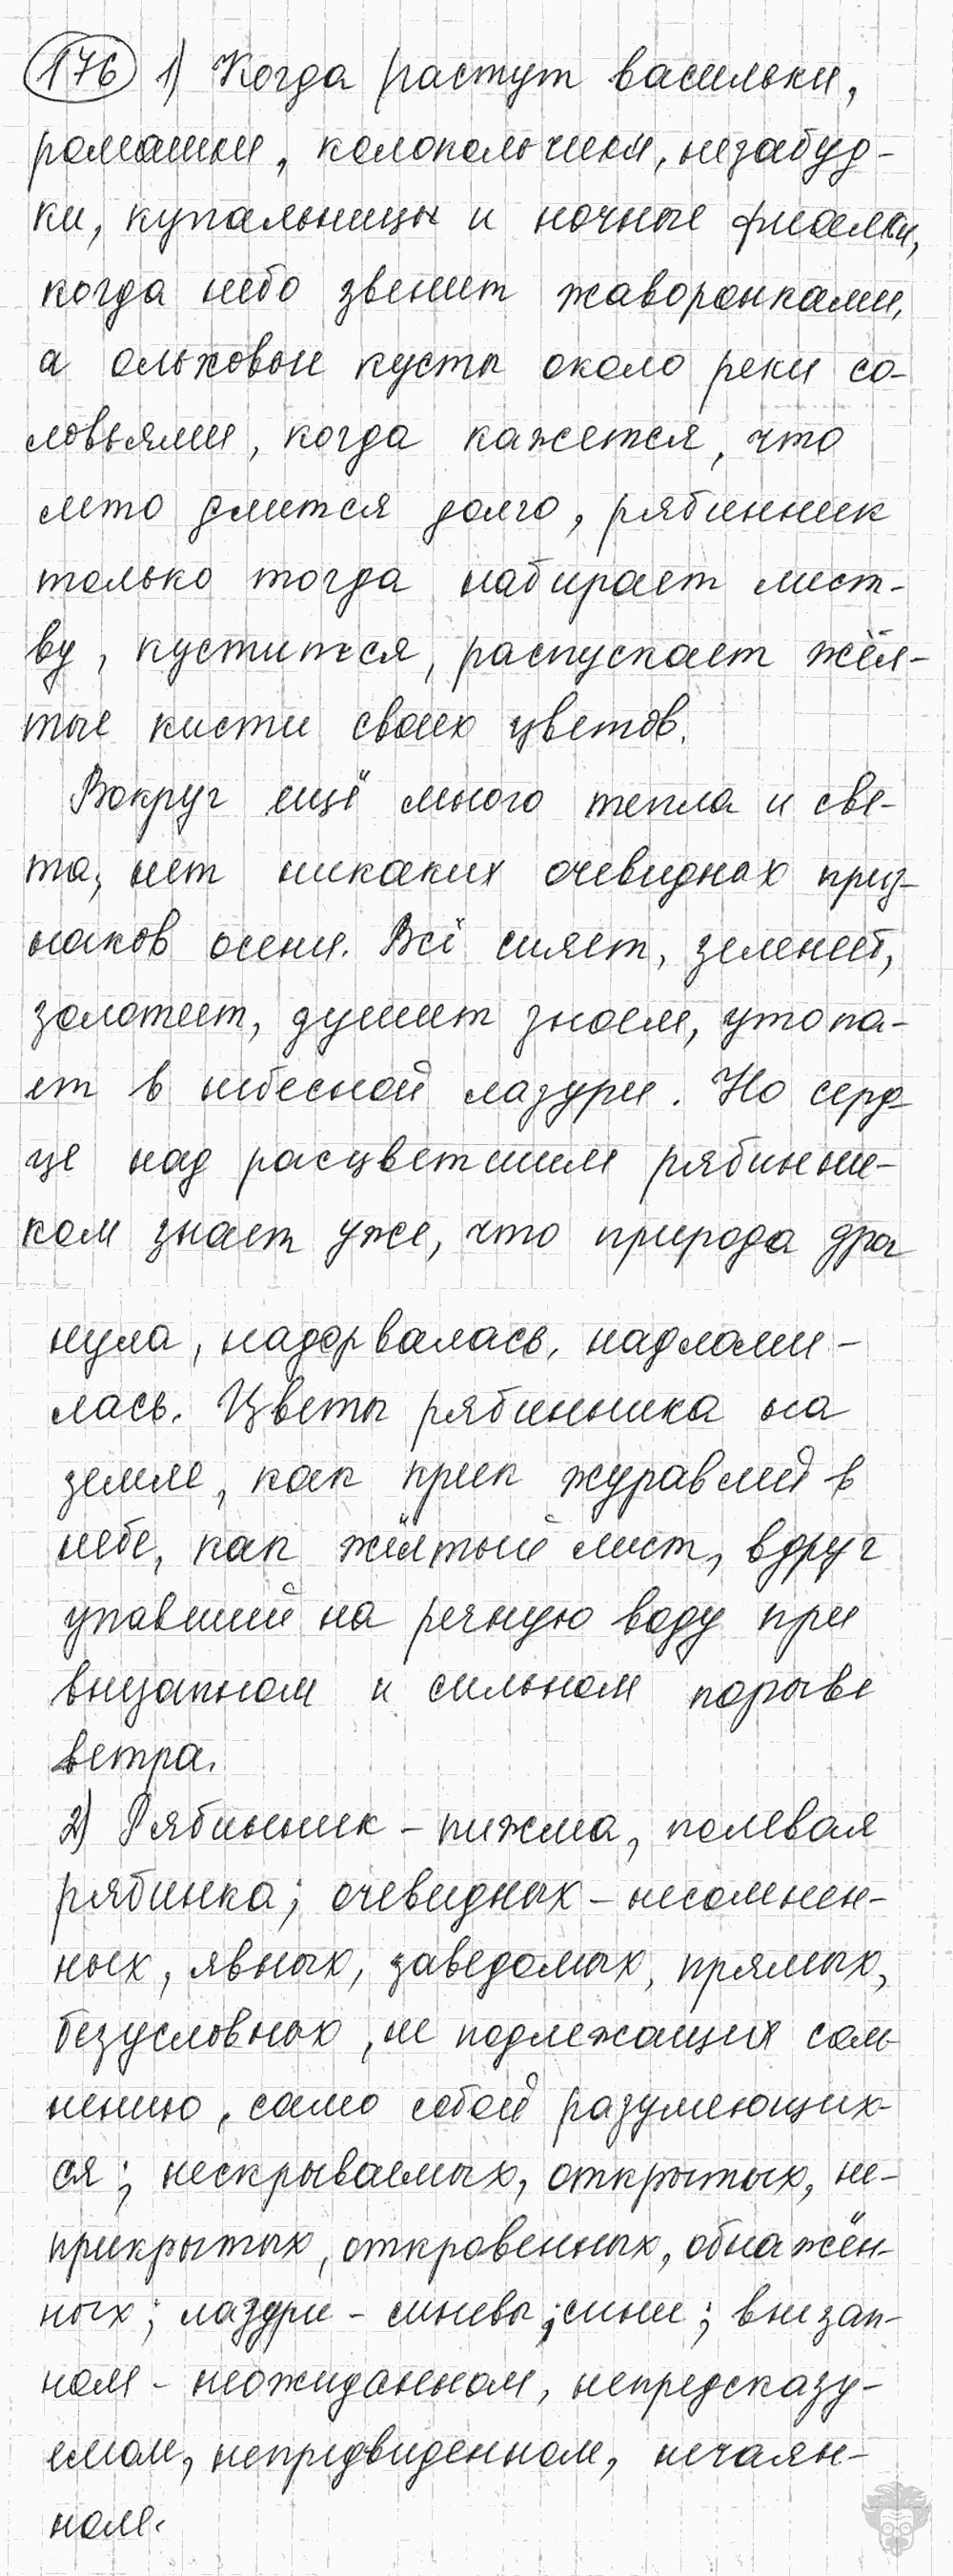 176 1) Когда растут васильки,
ромашки, колокольчики, незабуд-
ки, купальницы и ночные фиалки,
когда небо звенит жаворонками,
а ольховые кусты около реки со-
ловьями, когда кажется, что
лето длится долго, рябинник
только тогда набирает лист-
ву, кустится, распускает жёл-
тые кисти своих цветов.
Вокруг ещё много тепла и све-
та, нет никаких очевидных приз-
наков осени. Всё сияет, зеленеет,
золотеет, душит зноем, утопа-
ет в небесной лазури. Но серд-
це над расцветшим рябинни-
ком знает уже, что природа дрог
нула, надорвалась, надломи-
лась. Цветы рябинника на
земле, как крик журавлей в
небе, как жёлтый лист, вдруг
упавший на речную воду при
внезапном и сильном порыве
ветра.
2) Рябинник - пижма, полевая
рябинка; очевидных - несомнен-
ных, явных, заведомых, прямых,
безусловных, не подлежащих сом-
нению, само собой разумеющих-
ся; нескрываемых, открытых, не-
прикрытых, откровенных, обнажён-
ных; лазури - синевы; сини; внезап-
ном - неожиданном, непредсказу-
емом, непредвиденном, нечаян-
ном.